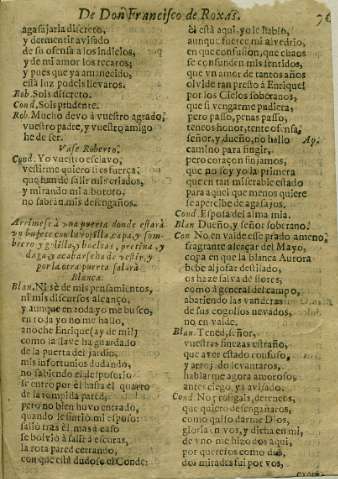 De Don Francisco de Roxas.
agasajarla discreto,
y desmentir avisado
de su ofensa a los indicios,
y de mi amor los recatos;
y pues que ya amanecido,
està luz podeis llevaros.
Rob. Sois discreto.
Cond. Sois prudente.
Rob. Mucho devo à vuestro agrado,
vuestro padre, y vuestro amigo
he de ser.
Vase Roberto.
Cond. Yo vuestro esclavo,
vestirme quiero
que han de salir mis criados,
y mirando mi alboroto
no sabràn mis desengaños.
Arrimese à una puerta donde estarà
un bufete con luz, capa, y som-
brero y golilla, y pretina, y
daga, y acabarse ha de vestir, y
por la otra puerta saldrà
Blanca.
Blan. Ni sè de mis pensamientos,
ni mis discursos alcanço,
y aunque en toda yo me busco,
en toda yo no me hallo,
anoche Enrique (ay de mi!)
como la llave ha guardado
de la puerta del jardin,
mis infortunios dudando,
no sabiendo el de
se entro por èl hasta el quarto
de la rompida pared,
pero no bien huvo entrado,
quando le sintiò mi esposo:
saliò tras èl, mas à caso
se bolviò à salir à escuras,
la rota pared cerrando,
con que està dudoso el Conde:
El està aqui, yo le hablo,
aunque fuerce mi alvedrio,
en que confusion, que chaos
se confunden mis sentidos,
que un amor de tantos años
olvide tan presto à Enrique!
por los Cielos soberanos,
que si vengarme pudiera;
pero passo, penas passo,
tencos honor, tente ofensa,
señor, y dueño, no hallo Ap.
camino para fingir,
pero coraçon finjamos,
que no soy yo la primera
que en tan miserable estado
para aquel que menos quiere
se apercibe de agasajos.
Cond. Esposa del alma mia.
Blan. Dueño, y señor soberano!
Con. No en valde esse prado ameno,
fragrante alcaçar del Mayo,
copa en que la blanca Aurora
bebe aljofar destilado,
os hizo salva de flores,
como à general del campo,
abatiendo las vanderas
de sus cogollos nevados,
no en valde.
Blan. Tened, señor,
vuestras finezas estraño,
que ayer estado confuso,
y levantaros,
hablarme agora amoroso,
antes ciego, ya avisado.
Cond. No prosigais, deteneos,
que quiero desengañaros,
como quiso darme Dios,
gloria en vos, y dicha en mi,
de uno me hizo dos aqui,
por quereros como dos,
dos miradas fui por vos,